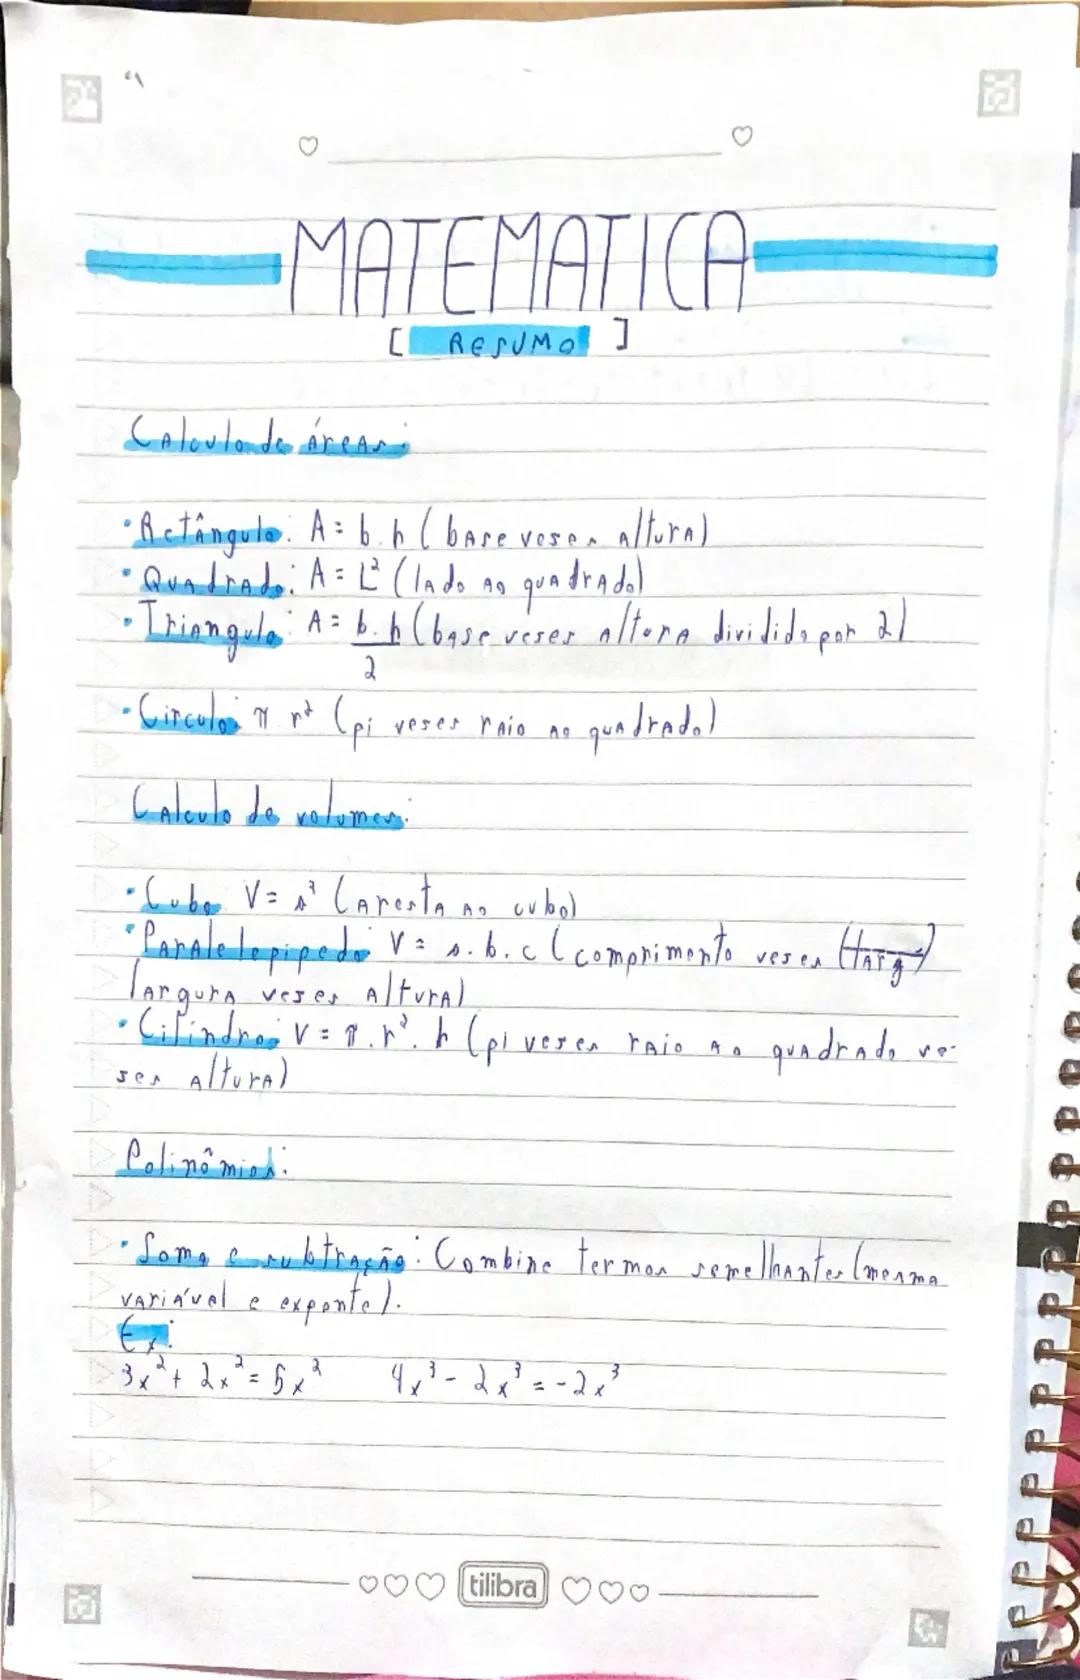 MATEMATICA
[ RESUMO ]
Calculo de áreas:
• Retângulo: A = b.h (base veses altura)
• Quadrado: A = L² (lado ao quadrado)
• Triangulo: A = b.h (base veses altura dividido por 2)
2
• Circulo: π r² (pi veses raio ao quadrado)
Calculo de volumes:
• Cubo V = a³ (aresta ao cubo)
• Paralelepipedo V = a.b.c (comprimento veses
largura veses altura)
• Cilindro: V = π.r².h (pi veses raio ao quadrado ve-
ses altura)
Polinômios:
• Soma e subtração: Combine termos semelhantes (mesma
variável e exponte).
Ex:
3x² + 2x² = 5x² 4x³ - 2x³ = -2x³
tilibra